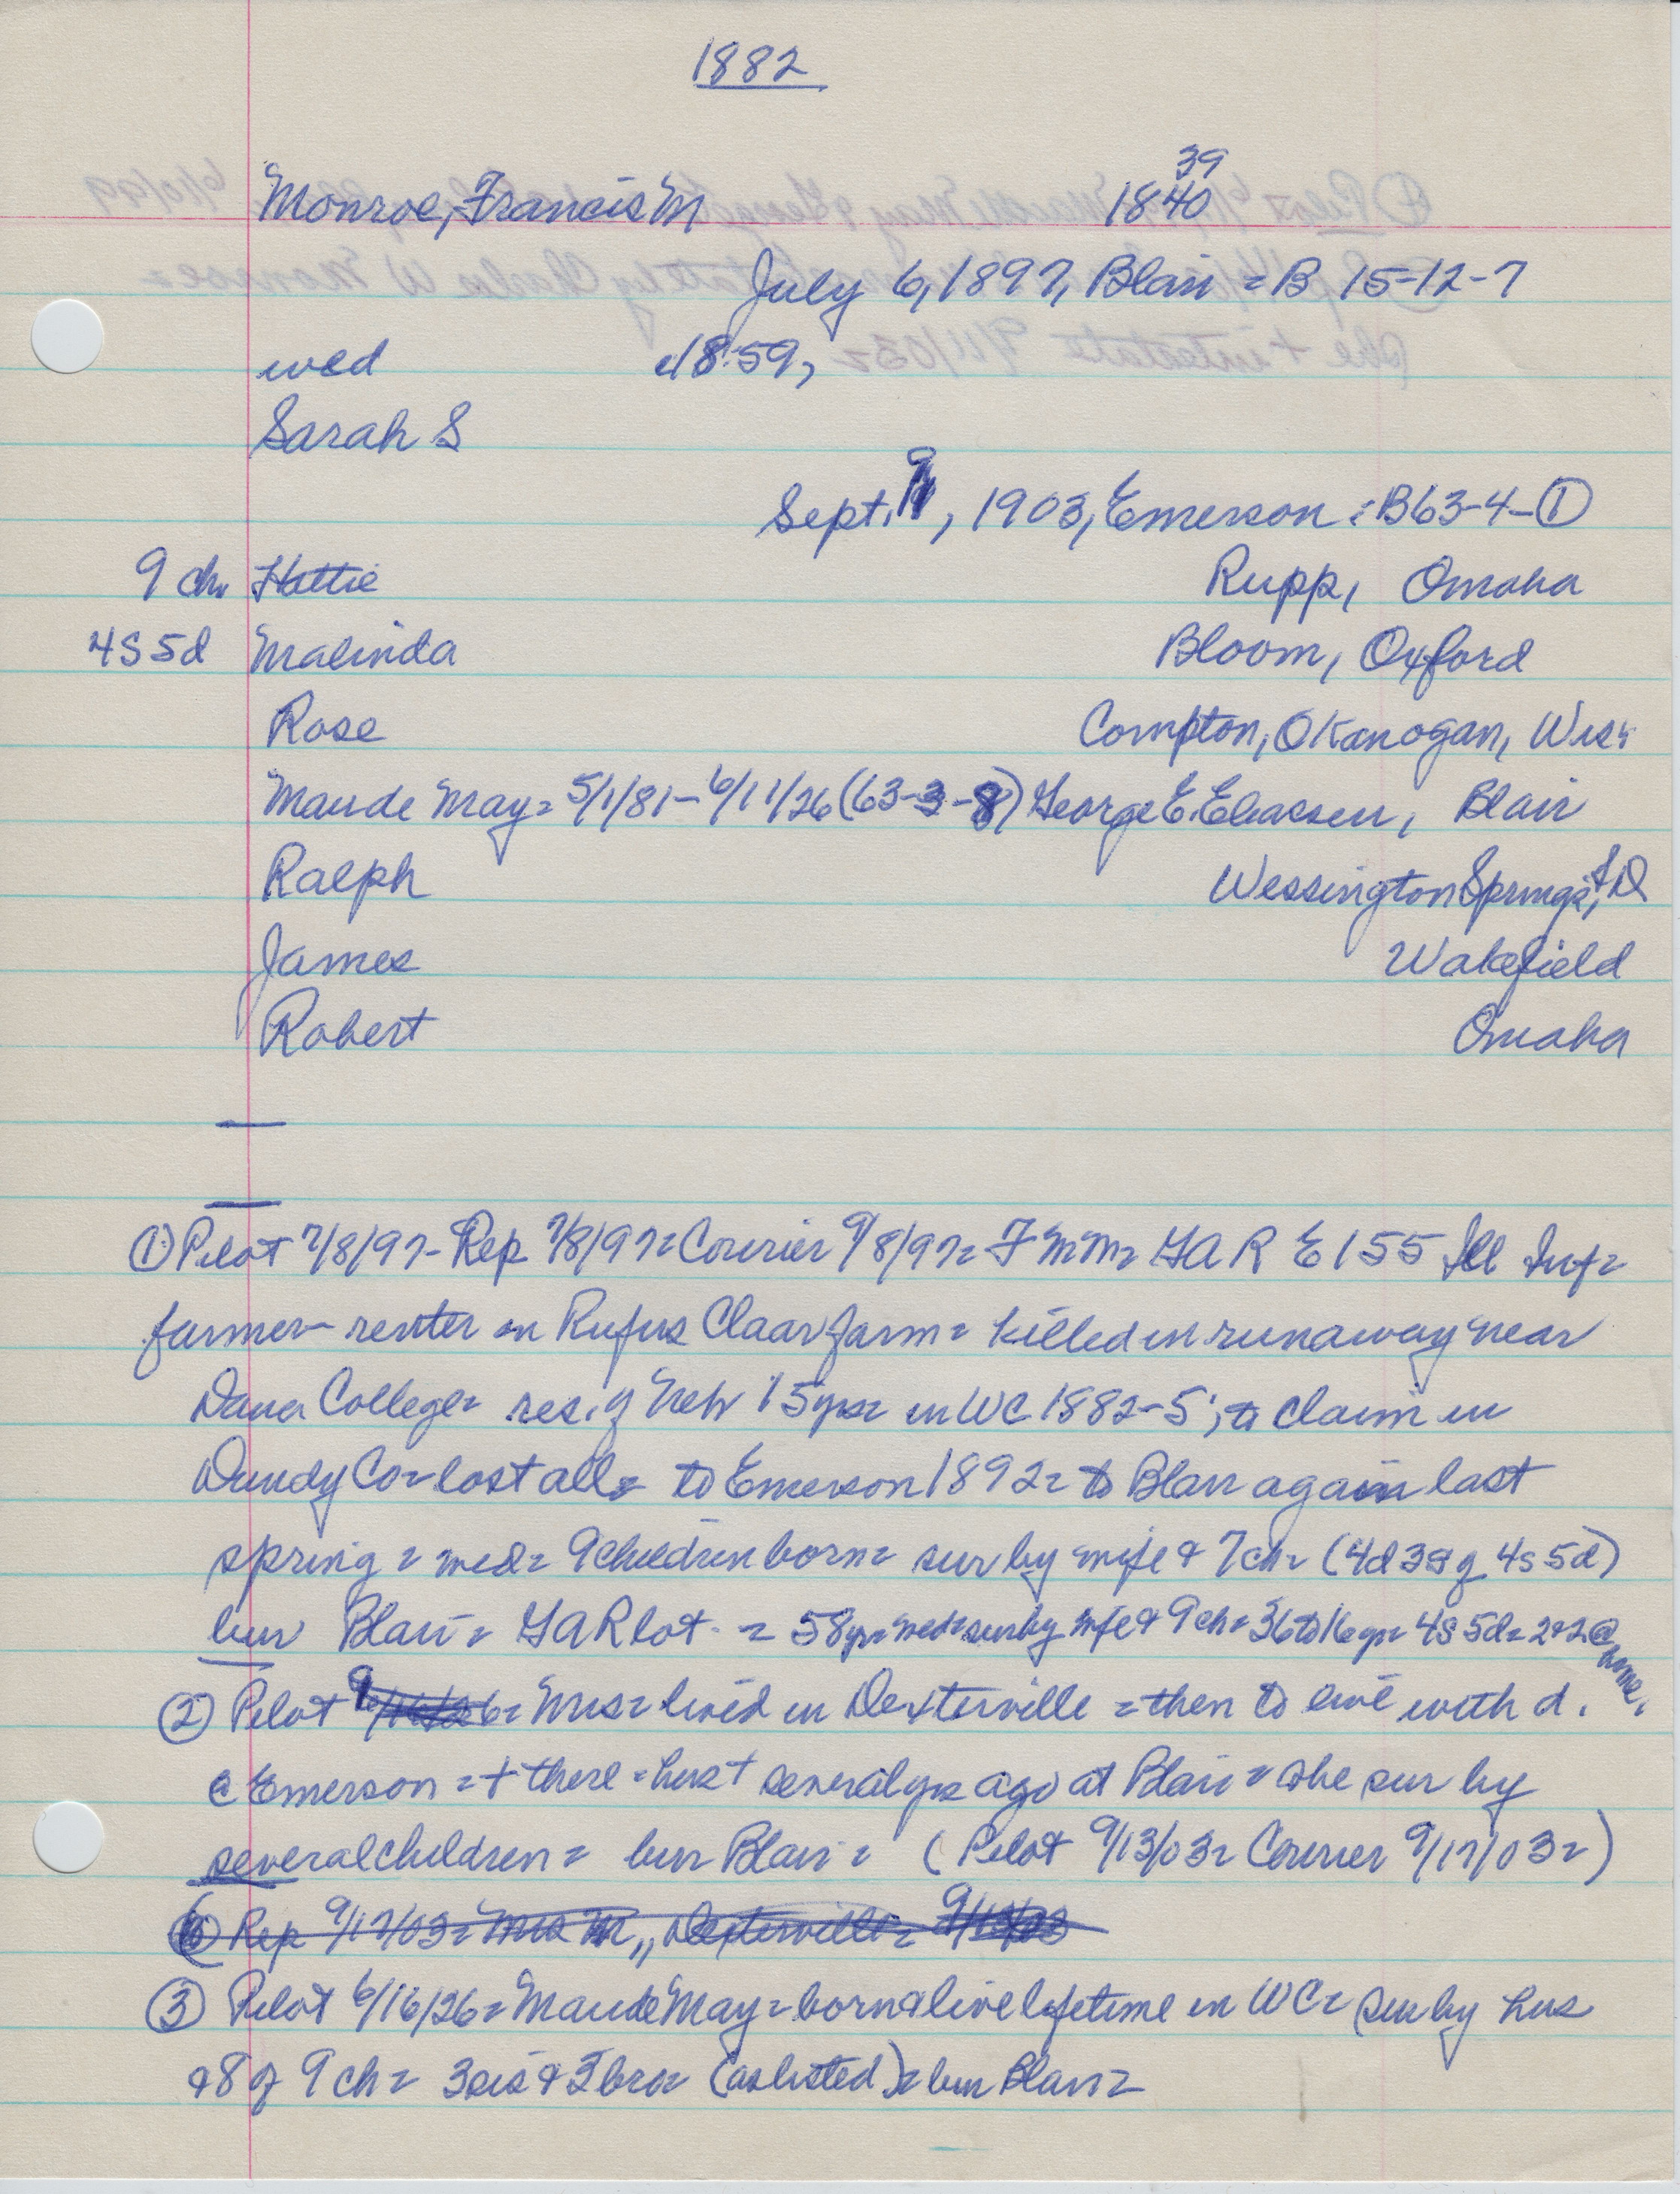 1882
Monroe, Francis M 1840 39
July 6, 1897, Blair = B 15-12-7
wed c1859,
Sarah S
Sept. 9, 1903, Emerson = B63-4-①
9 ch. Hattie Rupp, Omaha
4S 5d Malinda Bloom, Oxford
Rose Compton, Okanogan, Wis.
Maude May = 5/1/81 - 6/11/26 (63-3-8) George E. Eliasen, Blair
Ralph Wessington Springs, SD
James Wakefield
Robert Omaha
① Pilot 7/8/97 - Rep 7/8/97 = Courier 9/8/97 = F M M = GAR E 155 Ill Inf =
farmer - renter on Rufus Claar farm = killed in runaway near
Dana College = res. of Neb 15 yrs = in WC 1882-5; to claim in
Dundy Co = lost all = to Emerson 1892 = to Blair again last
spring = wed = 9 children born = sur by wife & 7 ch = (4d 3s of 4s 5d)
bur Blair = GAR lot = 58 yr = wed = sur by wife & 9 ch = 36 to 16 yr = 4S 5d = 2&2 @ home.
② Pilot = Mrs = lived in Dexterville = then to live with d.
@ Emerson = + there = hus + several yrs ago at Blair = she sur by
several children = bur Blair = (Pilot 9/13/03 = Courier 9/17/03 =)
Rep 9/17/03 = Mrs M, Dexterville =
③ Pilot 6/16/26 = Maude May = born & live lifetime in WC = sur by hus
& 8 of 9 ch = 3 sis & 3 bro = (as listed) = bur Blair =